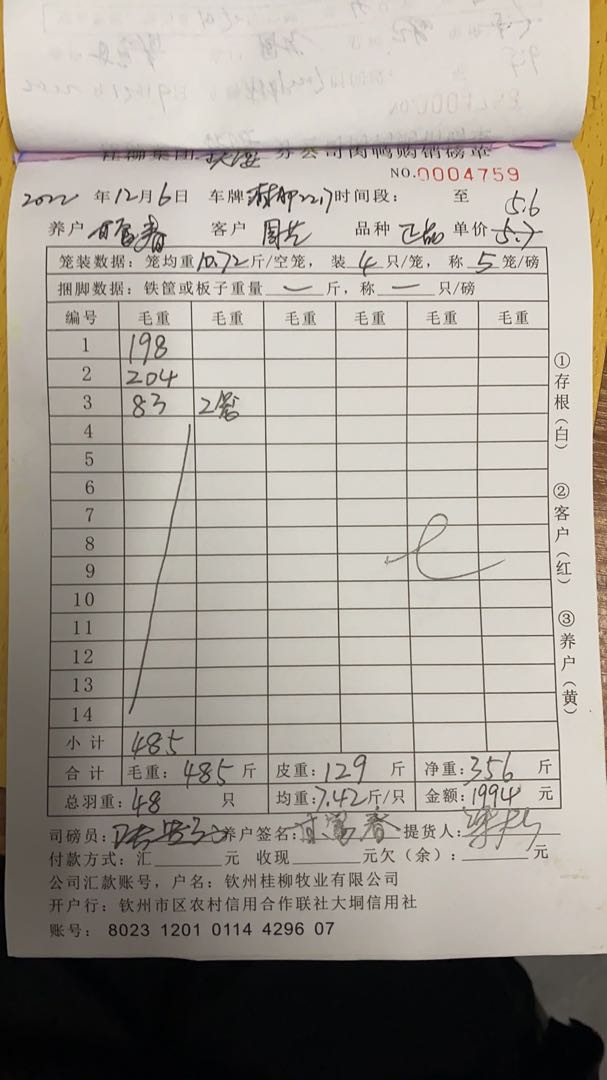 分公司肉鸭购销磅单
NO.0004759
2022 年 12 月 6 日 车牌 22.7 时间段： 至 5.6
养户 客户 周芝 品种 正品 单价 5.7
笼装数据：笼均重 10.72 斤/空笼，装 4 只/笼，称 5 笼/磅
捆脚数据：铁筐或板子重量 一 斤，称 一 只/磅
编号 毛重 毛重 毛重 毛重 毛重 毛重
1 198
2 204
3 83 2笼
4
5
6
7
8
9
10
11
12
13
14
小计 485
合计 毛重：485 斤 皮重：129 斤 净重：356 斤
总羽重：48 只 均重：7.42 斤/只 金额：1994 元
司磅员： 养户签名： 提货人：
付款方式：汇 元 收现 元欠（余）： 元
公司汇款账号，户名：钦州桂柳牧业有限公司
开户行：钦州市区农村信用合作联社大垌信用社
账号： 8023 1201 0114 4296 07
①存根（白）
②客户（红）
③养户（黄）